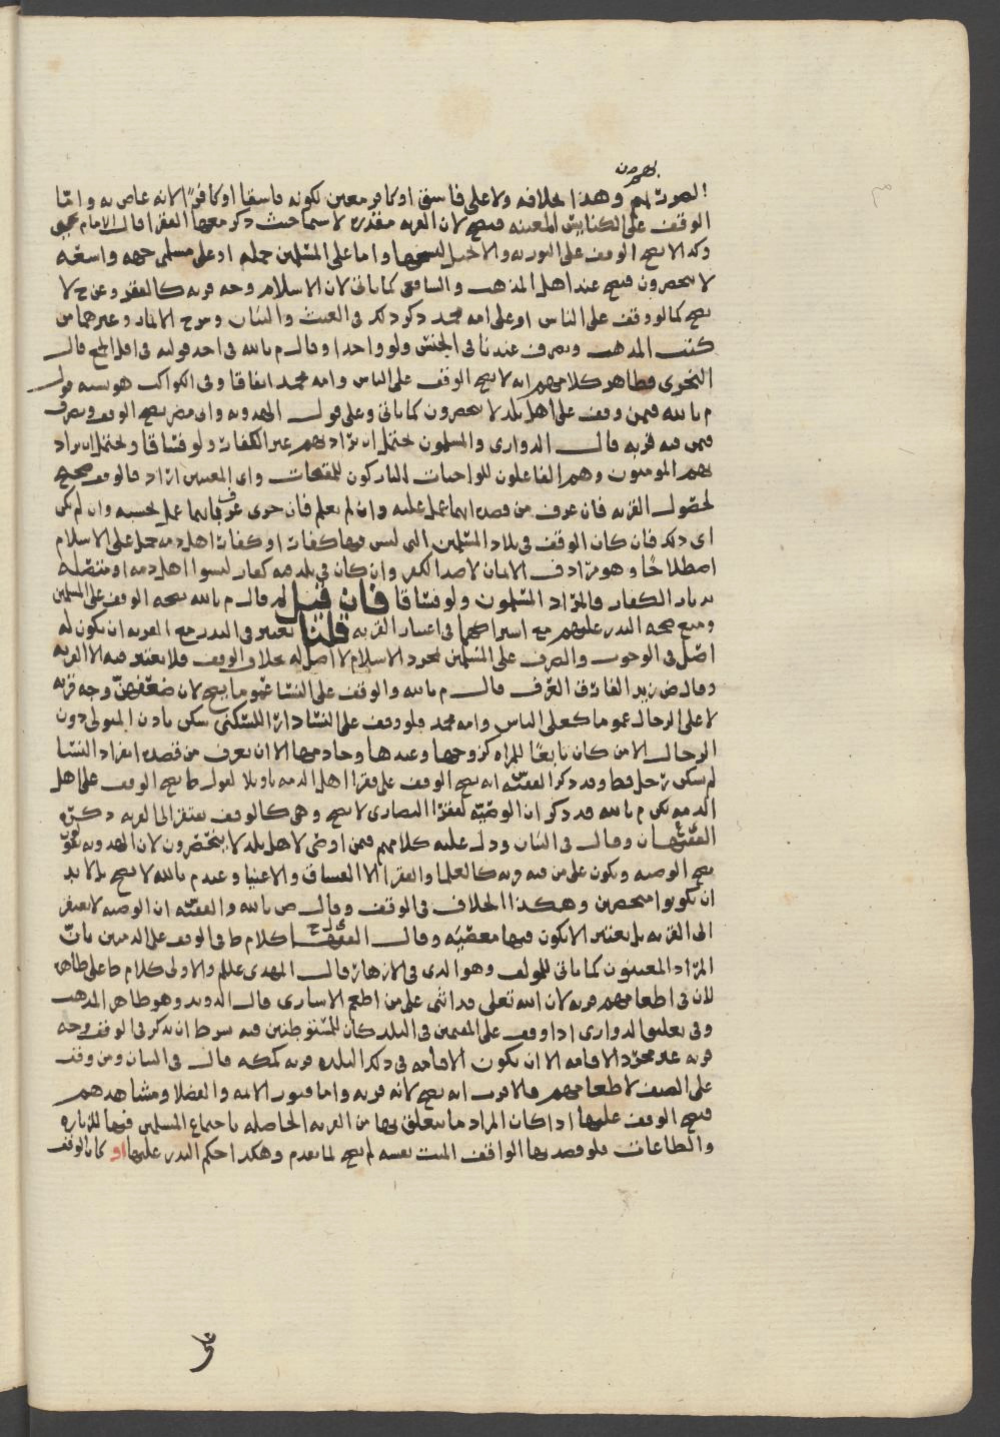 لصرت لهم وهذا بخلافه ولا على فاسق او كافر معين لكونه فاسقا او كافرا لانه عاص به واما
الوقف على الكنايس المعينه فيصح لان القربه مقدره لا سيما حيث ذكر معها الفقرا قال الامام
وكذا لا يصح الوقف على التوريه والانجيل لنسخها واما على المسلمين جمله او على مسلمي جهه واسعه
لا ينحصرون فيصح عند اهل المذهب والشافعي كما ياتي لان الاسلام وجه قربه كالفقر وعن ح لا
يصح كما لو وقف على الناس او على امه محمد ذكر ذلك في الغيث والبيان وشرح الاثمار وغيرهما من
كتب المذهب ويصرف عندنا في الجنس ولو واحدا وقال م بالله في احد قوليه في اقل الجمع قال
النجري فظاهر كلامهم انه لا يصح الوقف على الناس وامه محمد اتفاقا وفي الكواكب هو نسبه قول
م بالله فيمن وقف على اهل بلد لا ينحصرون كما ياتي وعلى قول الهدويه واي مضر يصح الوقف ويصرف
فيمن فيه قربه قال الدواري والمسلمون يحتمل ان يراد بهم غير الكفار ولو فساقا ويحتمل ان يراد
بهم المومنون وهم الفاعلون للواجبات التاركون للمقبحات واي المعنيين اراد فالوقف صحيح
لحصول القربه فان عرف من قصده ايهما عمل عليه وان لم يعلم فان جرى عرف بايهما عمل بحسبه وان لم يكن
اي ذلك فان كان الوقف في بلاد المسلمين التي ليس فيها كفار او كفار اهل ذمه حمل على الاسلام
اصطلاحا وهو مرادف الايمان لا ضد الكفر وان كان في بلد فيه كفار ليسوا اهل ذمه او متصله
بديار الكفار فالمراد المسلمون ولو فساقا فان قيل لم قال م بالله بصحه الوقف على المسلمين
ومنع صحه النذر عليهم مع اشتراكهما في اعتبار القربه قلنا يعتبر في النذر مع القربه ان يكون له
اصل في الوجوب والصرف على المسلمين لمجرد الاسلام لا اصل له بخلاف الوقف فلا يعتبر فيه الا القربه
وقال ض زيد الفارق العرف قال م بالله والوقف على النسا عموما يصح لان ضعفهن وجه قربه
لا على الرجال عموما كعلى الناس وامه محمد فلو وقف على النسا دارا للسكنى سكن باذن المتولي دون
الرجال الا من كان تابعا للمراه كزوجها وعبدها وخادمها الا ان يعرف من قصده افراد النسا
لم يسكن رجل قط وقد ذكر الفقيه انه يصح الوقف على فقرا اهل الذمه تاويلا لقول ط يصح الوقف على اهل
الذمه لكن م بالله قد ذكر ان الوصيه لفقرا النصارى لا تصح وهي كالوقف يفتقر الى القربه ذكره
الفقيهان وقال في البيان ودل عليه كلامهم فيمن اوصى لاهل بلد لا ينحصرون لان الهدويه
يصح الوصيه ويكون على من فيه قربه كالعلما والفقرا لا الفساق والاغنيا وعند م بالله لا يصح بل لا بد
ان يكونوا منحصرين وهكذا الخلاف في الوقف وقال ص بالله والفقيه ان الوصيه لا تفتقر
الى القربه بل يعتبر الا يكون فيها معصيه وقال الفقيه كلام ط في الوقف على الذميين بان
المراد المعينون كما ياتي للمولف وهو الذي في الازهار قال المهدي عللم والاولى كلام ط على ظاهره
لان في اطعامهم قربه لان الله تعلى قد اثنى على من اطعم الاسارى قال الدويد وهو ظاهر المذهب
وفي تعليق الدواري اذا وقف على المقيمين في البلد كان للمستوطنين فيه بشرط ان يذكر في الوقف وجه
قربه غير مجرد الاقامه الا ان يكون الاقامه في ذلك البلده قربه كمكه قال في البيان ومن وقف
على الضيف لاطعامهم فالاقرب انه يصح لانه قربه واما قبور الائمه والفضلا ومشاهدهم
فيصح الوقف عليها اذا كان المراد ما يتعلق بها من القربه الحاصله باجتماع المسلمين فيها للزياره
والطاعات فلو قصد بها الواقف الميت نفسه لم يصح لما تقدم وهكذا حكم النذر عليها او كان الوقف